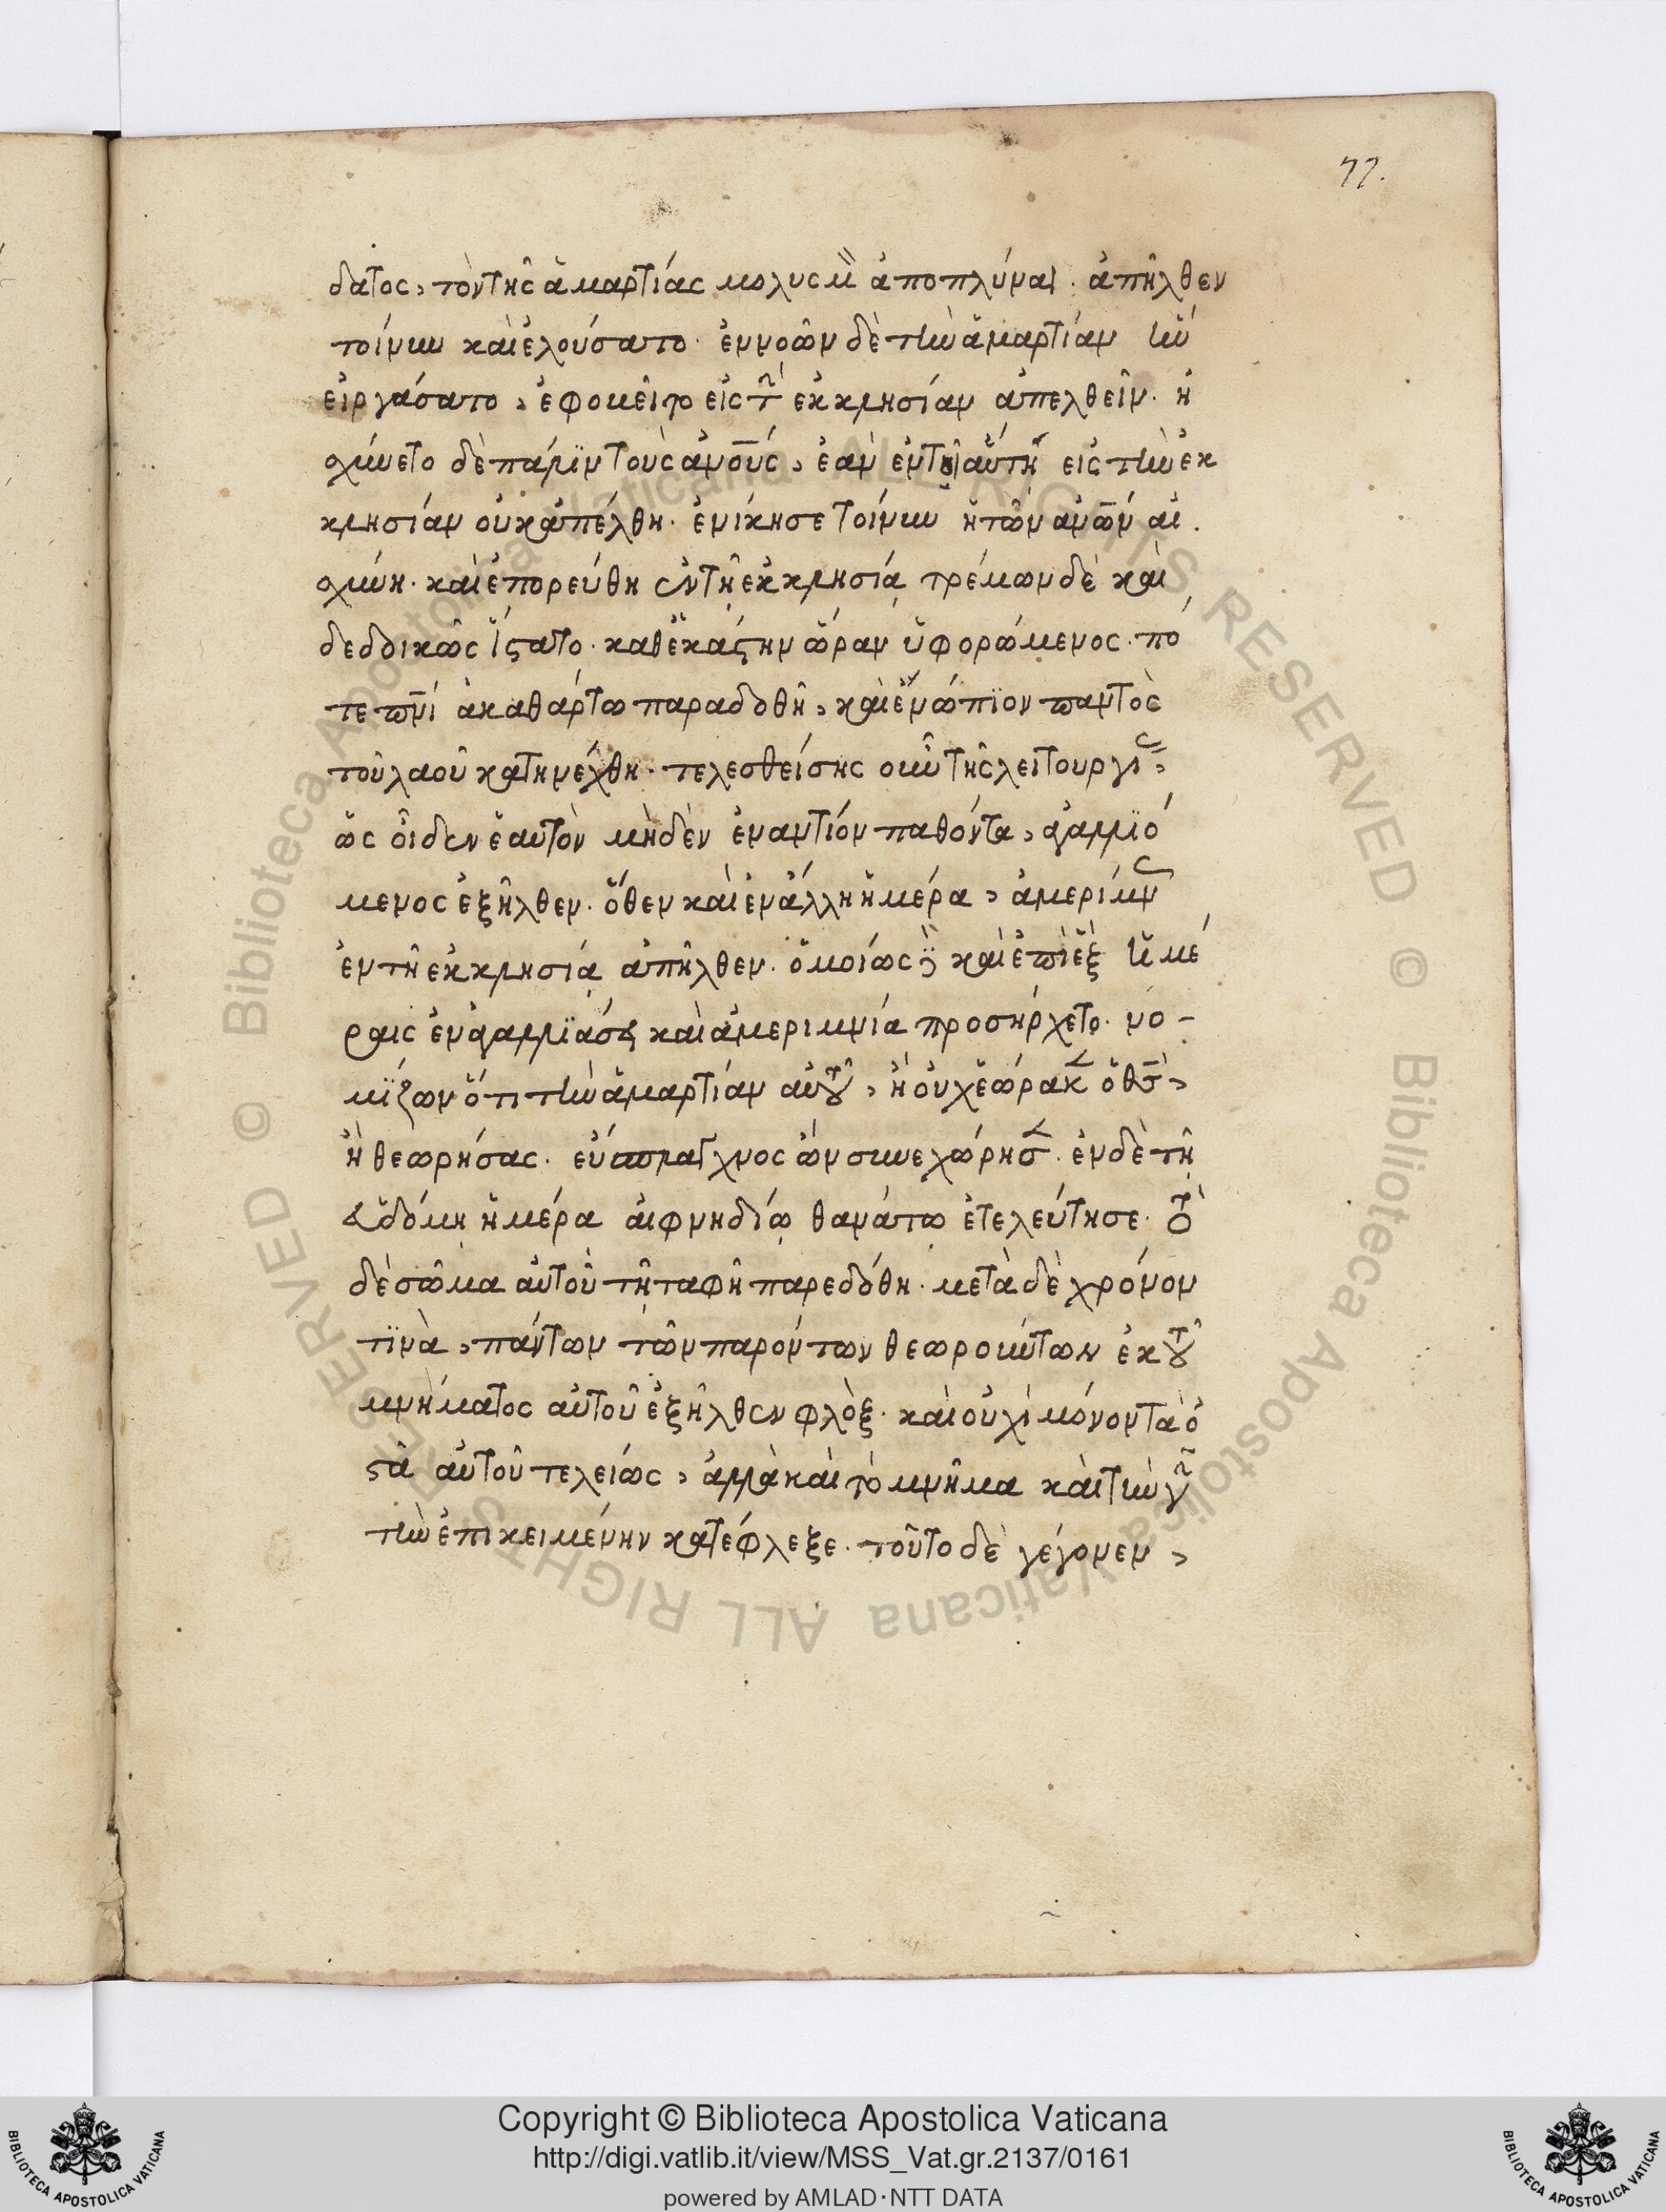 77.
δατος, τὸν τῆς ἁμαρτίας μολυσμὸν ἀποπλύναι. ἀπῆλθεν
τοίνυν καὶ ἐλούσατο. ἐννοῶν δὲ τὴν ἁμαρτίαν ἣν
εἰργάσατο, ἐφοβεῖτο εἰς τὴν ἐκκλησίαν ἀπελθεῖν. ἠ
σχύνετο δὲ πάλιν τοὺς ἀνους, ἐὰν ἐν τοιαύτη εἰς τὴν ἐκ
κλησίαν οὐκ ἀπέλθη. ἐνίκησε τοίνυν ἡ τῶν ανων αἰ
σχύνη. καὶ ἐπορεύθη ἐν τῆ ἐκκλησία τρέμων δὲ καὶ
δεδοικῶς ἵστατο. καθ ἑκάστην ὥραν ὑφορώμενος. πό
τε πνι ἀκαθάρτω παραδοθῆ, καὶ ἐνώπϊον παντὸς
τοῦ λαοῦ κατηνέχθη. τελεσθείσης οὖν τῆς λειτουργίας,
ὡς οἶδεν ἑαυτὸν μὴδὲν ἐναντίον παθόντα, ἀγαλλϊό
μενος ἐξῆλθεν. ὅθεν καὶ ἐν ἄλλη ἡμέρα, ἀμερίμνως
ἐν τῆ ἐκκλησία ἀπῆλθεν. ὁμοίως καὶ ἐπὶ ἓξ ἡμέ
ραις ἐν ἀγαλλϊάσει καὶ ἀμεριμνία προσήρχετο. νο-
μϊζων ὅτι τὴν ἁμαρτίαν αὐτοῦ, ἢ οὐχ ἑώρακεν ὁ θς,
ἢ θεωρήσας. εὐσπλαγχνος ὢν συνεχώρησεν. ἐν δὲ τῆ
ἑβδόμη ἡμέρα αἰφνηδίω θανάτω ἐτελεύτησε. τὸ
δὲ σῶμα αὐτοῦ τῆ ταφῆ παρεδόθη. μετὰ δὲ χρόνον
τϊνὰ, πάντων τῶν παρόντων θεωρούντων ἐκ τοῦ
μνήματος αὐτοῦ ἐξῆλθεν φλὸξ. καὶ οὐχὶ μόνον τὰ ὀ
στᾶ αὐτοῦ τελείως, ἀλλὰ καὶ τὸ μνῆμα καὶ τὴν γῆν
τὴν ἐπικειμένην κατέφλεξε. τοῦτο δὲ γέγονεν,
Copyright © Biblioteca Apostolica Vaticana
http://digi.vatlib.it/view/MSS_Vat.gr.2137/0161
powered by AMLAD·NTT DATA